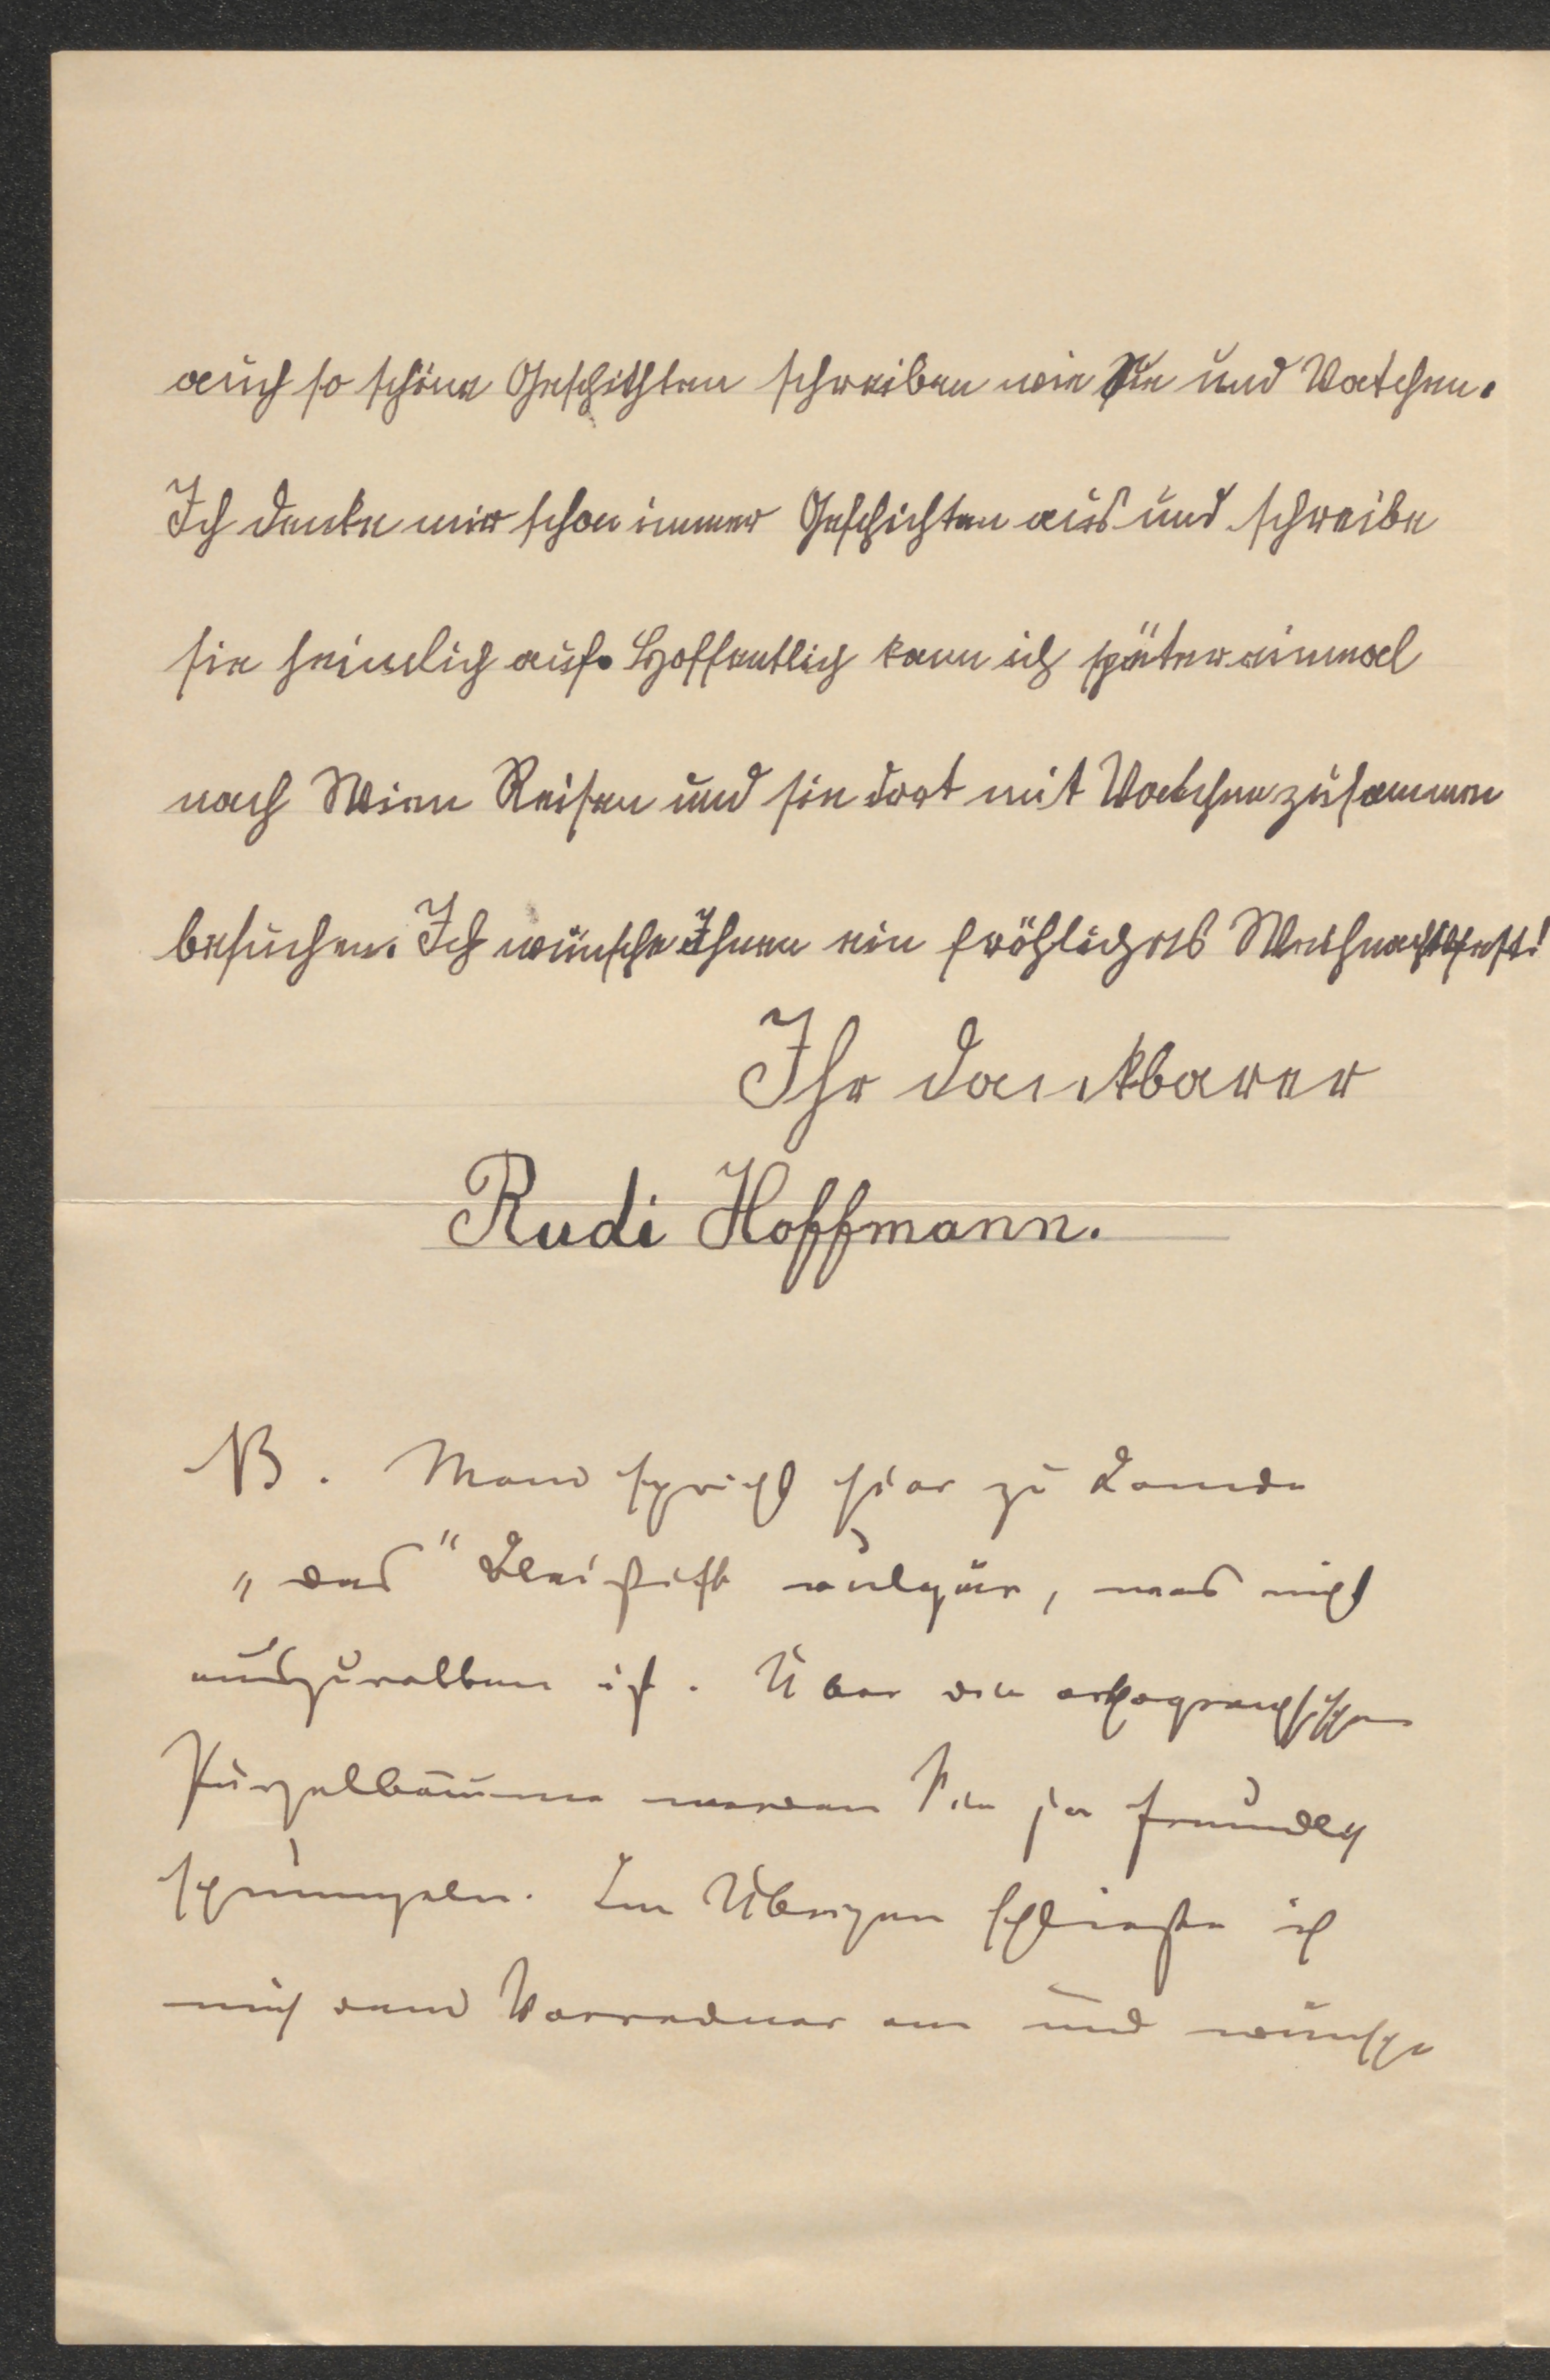 auch so schöne Geschichten schreiben wie Sie und Vatchen.
Ich denke mir schon immer Geschichten aus und schreibe
sie heimlich auf. Hoffentlich kann ich später einmal
nach Wien Reisen und sie dort mit Vatchen zusammen
besuchen. Ich wünsche Ihnen ein fröhliches Weihnachtsfest!
Ihr dankbarer
Rudi Hoffmann.
NB. Man spricht hier zu Lande
„das“ Bleistift vulgär, was nicht
auszurotten ist. Über die orthographischen
Purzelbäume werden Sie ja freundlich
schmunzeln. Im Übrigen schließe ich
mich dem Vorredner an und wünsche